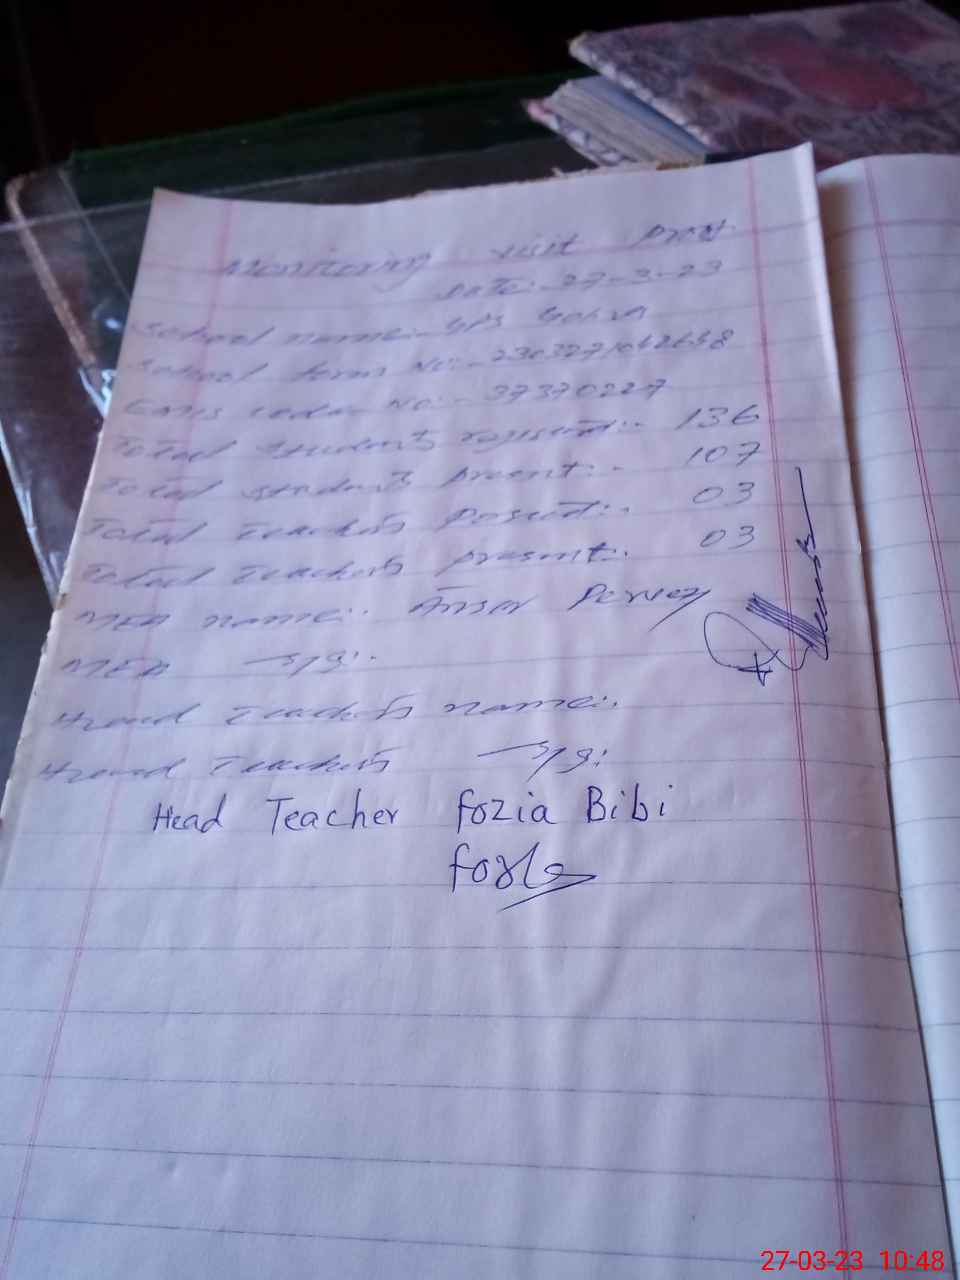 Monitoring visit proof
Date:- 27-3-23
School name:- GPS
School form No:-
EMIS code No:- 37370227
Total students registred:- 136
Total students present:- 107
Total Teachers Posted:- 03
Total Teachers present:- 03
MEA name:- Ansar Pervez
MEA sig:-
Head Teachers name:-
Head Teachers sig:
Head Teacher Fozia Bibi
27-03-23 10:48